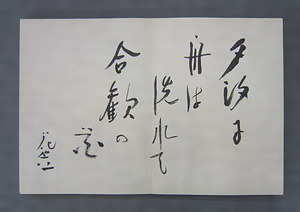 夕汐に
舟は
洗れて
合歓の
花